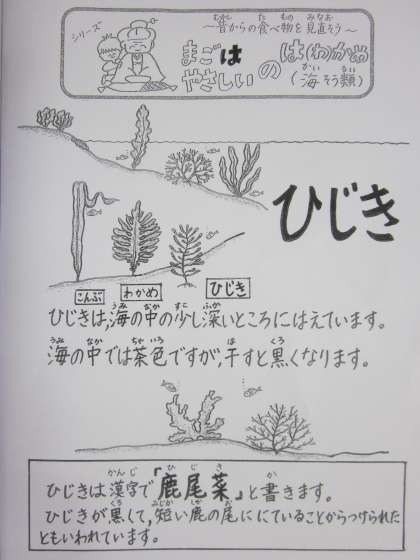 シリーズ
～昔からの食べ物を見直そう～
まごは
やさしい
の
は(わ)かめ
(海そう類)
ひじき
こんぶ
わかめ
ひじき
ひじきは、海の中の少し深いところにはえています。
海の中では茶色ですが、干すと黒くなります。
ひじきは漢字で「鹿尾菜」と書きます。
ひじきが黒くて、短い鹿の尾ににていることからつけられた
ともいわれています。